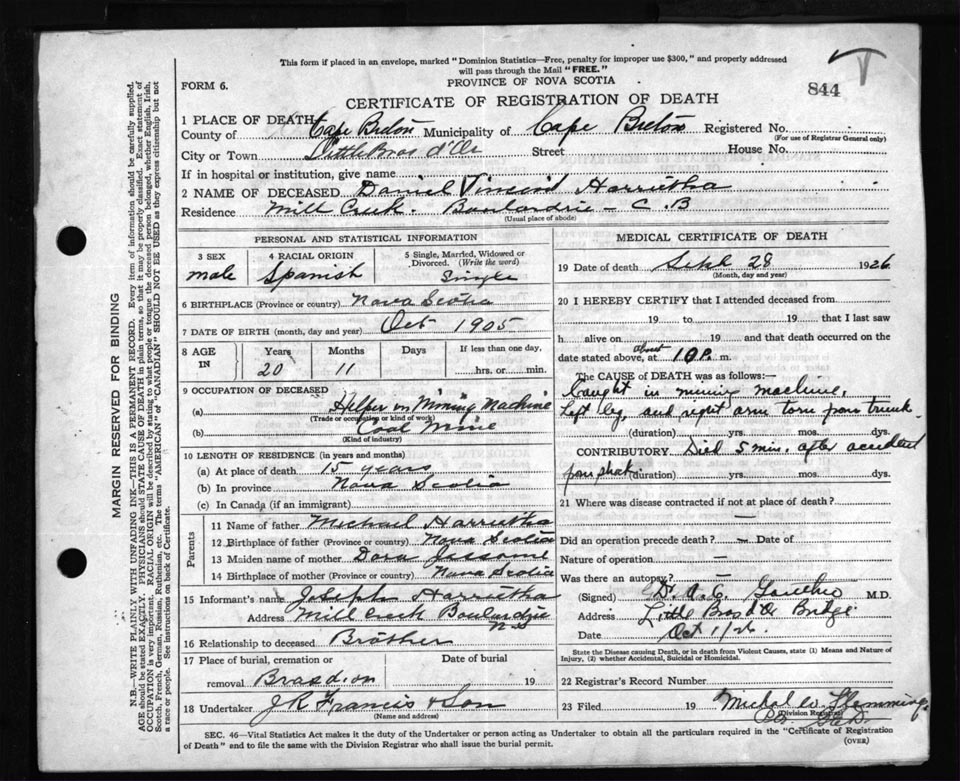 This form if placed in an envelope, marked "Dominion Statistics—Free, penalty for improper use $300," and properly addressed
will pass through the Mail "FREE."
FORM 6.
PROVINCE OF NOVA SCOTIA
844
CERTIFICATE OF REGISTRATION OF DEATH
1 PLACE OF DEATH
County of Cape Breton Municipality of Cape Breton Registered No.
(For use of Registrar General only)
City or Town Little Bras d'Or Street House No.
If in hospital or institution, give name
2 NAME OF DECEASED Daniel Vincent Harrietha
Residence Mill Creek. Boulardrie - C.B
(Usual place of abode)
PERSONAL AND STATISTICAL INFORMATION
3 SEX 4 RACIAL ORIGIN 5 Single, Married, Widowed or
Divorced. (Write the word)
male Spanish Single
6 BIRTHPLACE (Province or country) Nova Scotia
7 DATE OF BIRTH (month, day and year) Oct 1905
8 AGE IN Years Months Days If less than one day,
20 11 hrs. or min.
9 OCCUPATION OF DECEASED
(a) Helper on Mining Machine
(Trade or occupation or kind of work)
(b) Coal Mine
(Kind of industry)
10 LENGTH OF RESIDENCE (in years and months)
(a) At place of death 15 years
(b) In province Nova Scotia
(c) In Canada (if an immigrant)
Parents
11 Name of father Michael Harrietha
12 Birthplace of father (Province or country) Nova Scotia
13 Maiden name of mother Dora Jessome
14 Birthplace of mother (Province or country) Nova Scotia
15 Informant's name Joseph Harrietha
Address Mill Creek Boulardrie
N.S
16 Relationship to deceased Brother
17 Place of burial, cremation or Date of burial
removal Bras d'or 19
18 Undertaker J R Francis & Son
(Name and address)
MEDICAL CERTIFICATE OF DEATH
19 Date of death Sept 28 1926
(Month, day and year)
20 I HEREBY CERTIFY that I attended deceased from
19 to 19 that I last saw
h alive on 19 and that death occurred on the
date stated above, at about 10 P. m.
The CAUSE OF DEATH was as follows:—
Caught in mining machine,
Left leg, and right arm torn from trunk.
(duration) yrs. mos. dys.
CONTRIBUTORY. Died 5 min. after accident
(duration) yrs. mos. dys.
21 Where was disease contracted if not at place of death?
Did an operation precede death? — Date of
Nature of operation —
Was there an autopsy? —
(Signed) M.D.
Address Little Bras d'Or Bridge
Date Oct 1/26.
State the Disease causing Death, or in death from Violent Causes, state (1) Means and Nature of
Injury, (2) whether Accidental, Suicidal or Homicidal.
22 Registrar's Record Number
23 Filed 19
Division Registrar
SEC. 46—Vital Statistics Act makes it the duty of the Undertaker or person acting as Undertaker to obtain all the particulars required in the "Certificate of Registration
of Death" and to file the same with the Division Registrar who shall issue the burial permit. (OVER)
MARGIN RESERVED FOR BINDING
N.B.—WRITE PLAINLY, WITH UNFADING INK—THIS IS A PERMANENT RECORD. Every item of information should be carefully supplied.
AGE should be stated EXACTLY. PHYSICIANS should STATE CAUSE OF DEATH in plain terms, so that it may be properly classified. Exact statement of
OCCUPATION is very important. RACIAL ORIGIN will be described by stating to what people or tongue the deceased person belonged, whether English, Irish,
Scotch, French, German, Russian, Ruthenian, etc. The terms "AMERICAN" or "CANADIAN" SHOULD NOT BE USED as they express citizenship but not
a race or people. See instructions on back of Certificate.